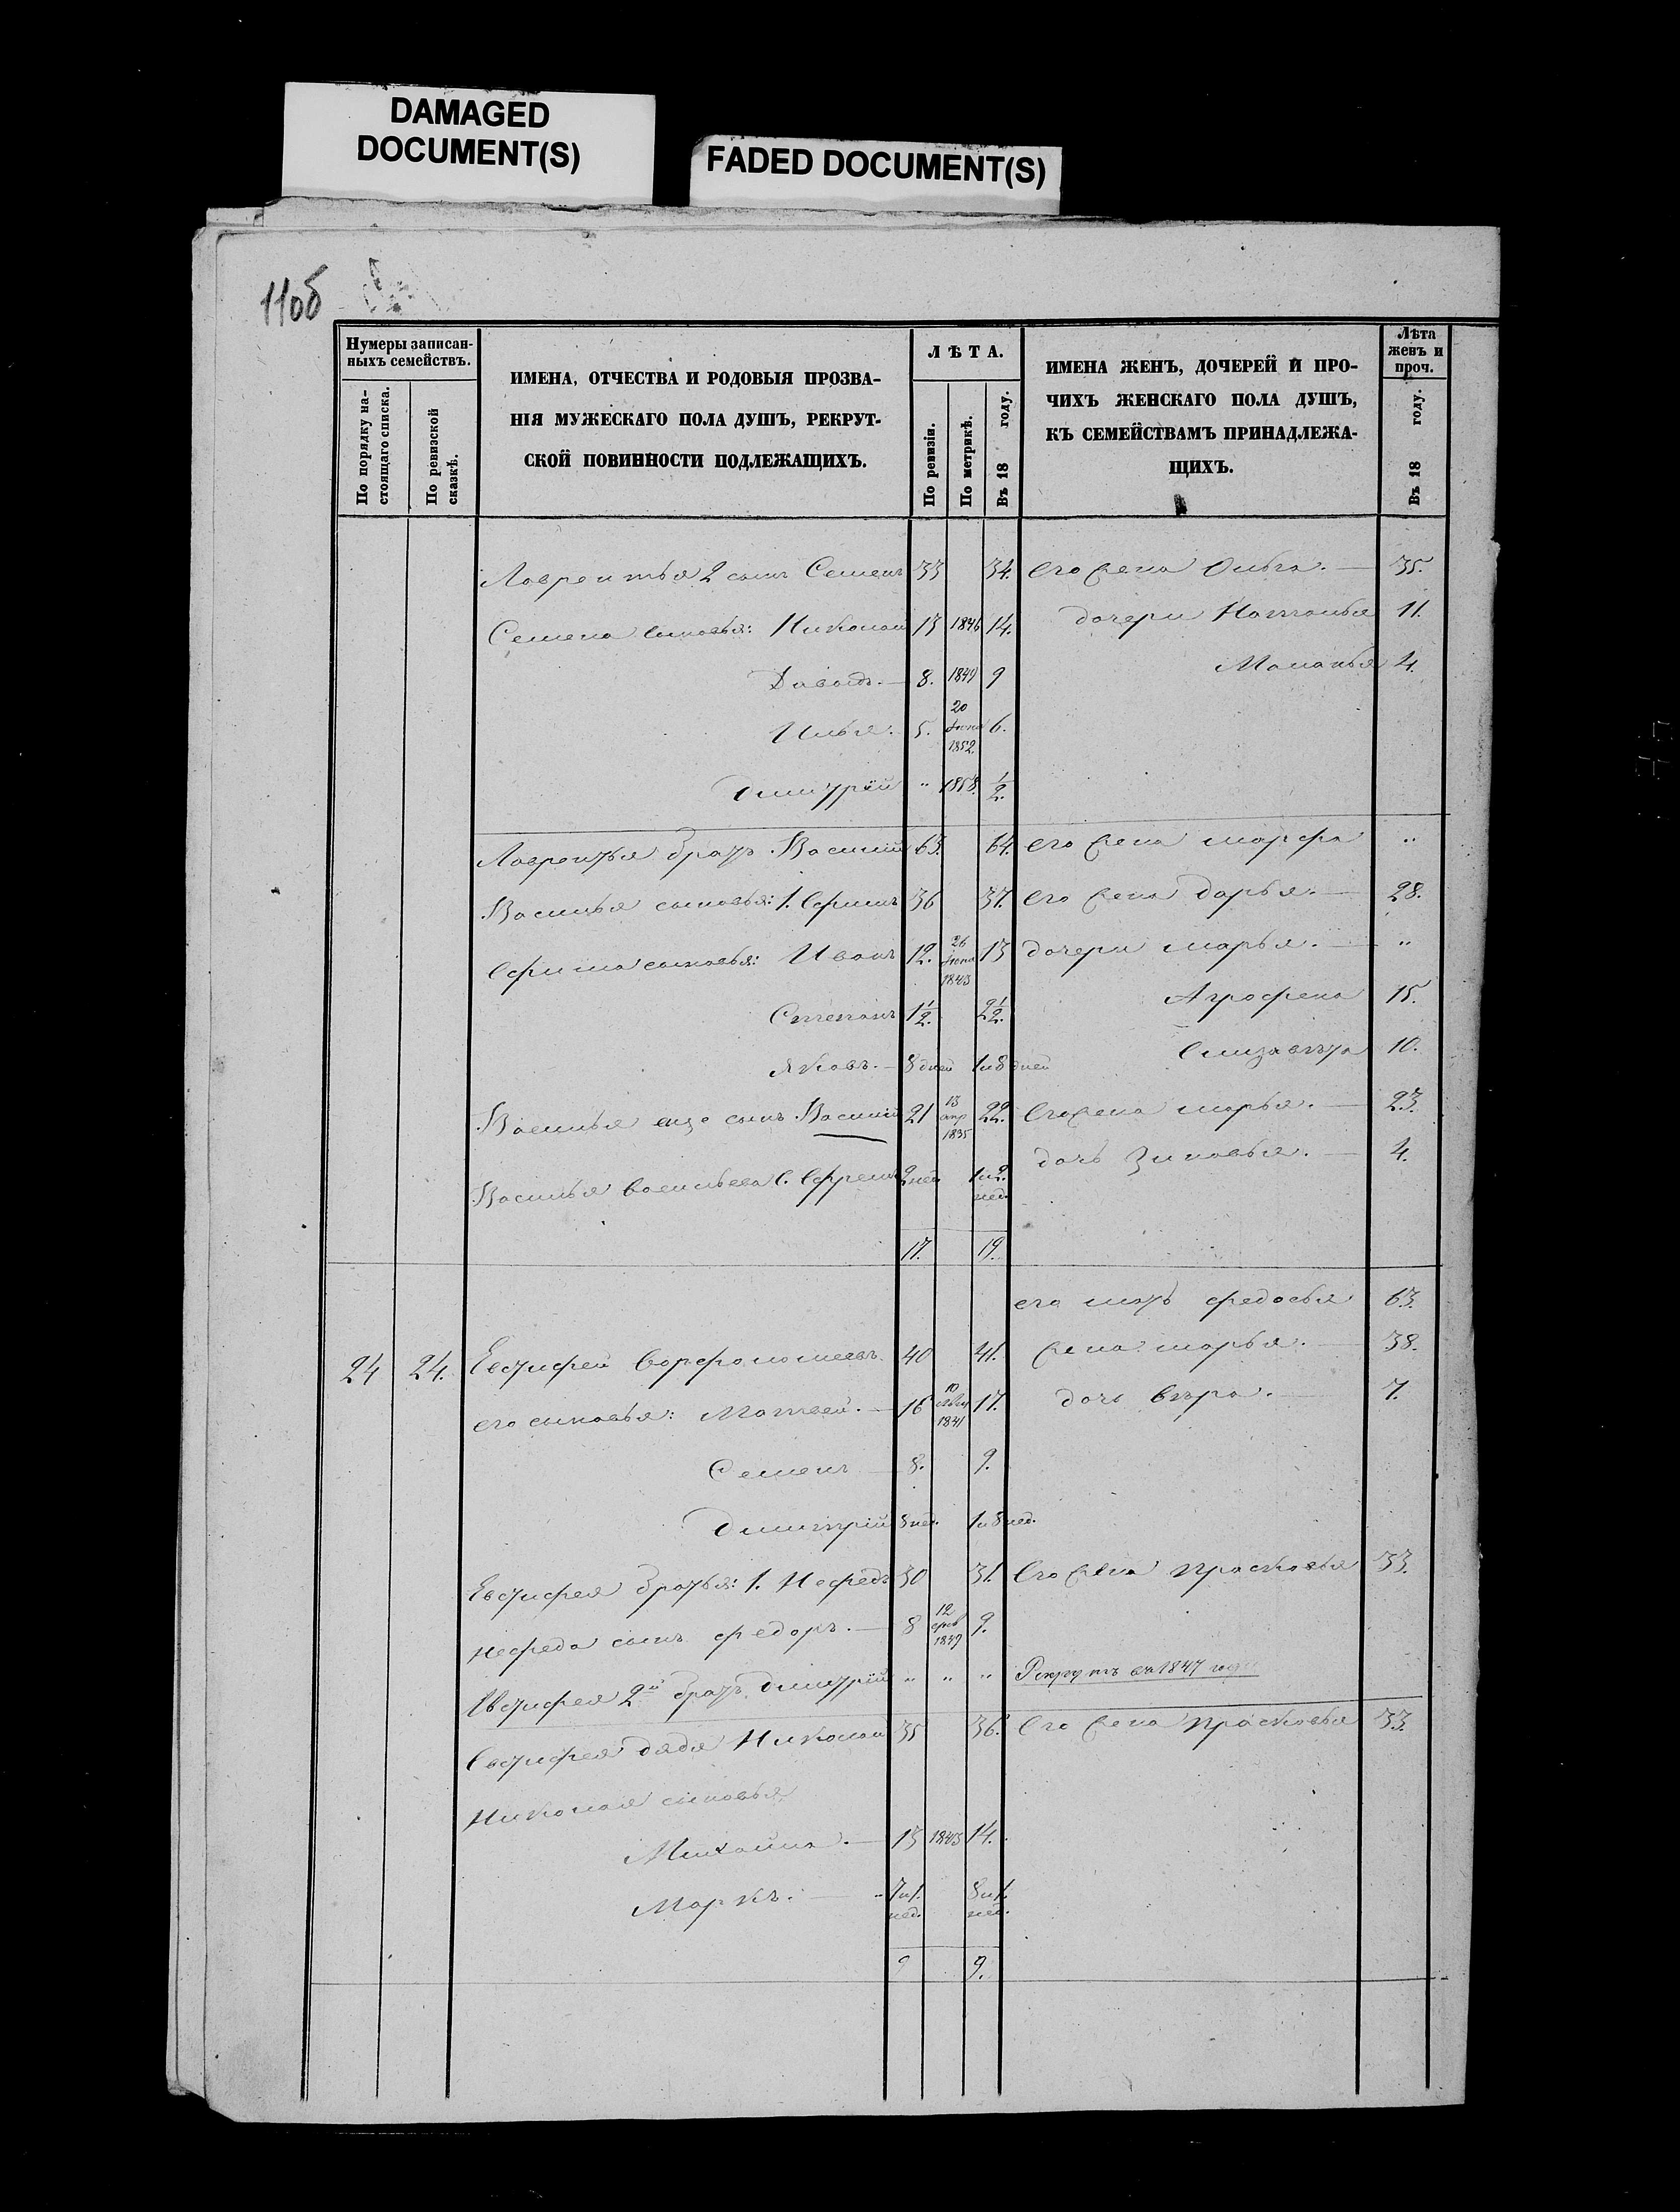 DAMAGED
DOCUMENT(S)
FADED DOCUMENT(S)
110б
Нумеры записан-
ныхъ семействъ.
По порядку на-
стоящаго списка.
По ревизской
сказкѣ.
ИМЕНА, ОТЧЕСТВА И РОДОВЫЯ ПРОЗВА-
НІЯ МУЖЕСКАГО ПОЛА ДУШЪ, РЕКРУТ-
СКОЙ ПОВИННОСТИ ПОДЛЕЖАЩИХЪ.
ЛѢТА.
По ревизіи.
По метрикѣ.
Въ 18 году.
ИМЕНА ЖЕНЪ, ДОЧЕРЕЙ И ПРО-
ЧИХЪ ЖЕНСКАГО ПОЛА ДУШЪ,
КЪ СЕМЕЙСТВАМЪ ПРИНАДЛЕЖА-
ЩИХЪ.
Лѣта
женъ и
проч.
Въ 18 году.
Лаврентья 2 сынъ Семенъ 33 34. его жена Ольга. 35.
Семена сыновья: Николай 13 1846 14. дочери Наталья 11.
Давыдъ. 8. 1849 9 Маланья 4.
Илья. 5. 20 Іюля 1852 6.
Димитрій " 1858. 1/2.
Лаврентья братъ Василій 63. 64. его жена марфа "
Василья сыновья: 1. Ефимъ 36 37. его жена дарья. 28.
Ефима сыновья: Иванъ 12. 26 1843 13 дочери марья. "
Степанъ 1 1/2. 2 1/2. Агрофена 15.
Яковъ. 8 дней 1 и 8 дней Елизавета 10.
Василья еще сынъ Василій 21 13 апр 1835 22. Его жена марья. 23.
дочь Зиновья. 4.
Василья васильева с. Ефремъ 2 нед. 1 и 2. нед.
17. 19.
его мать федосья 63.
24 24. Евстифей Варфоломеевъ 40 41. жена марья. 38.
его сыновья: Матвей. 16 10 1841 17. дочь вера. 7.
Семенъ 8. 9.
Димитрій 8 нед. 1 и 8 нед.
Евстифея братья: 1. Нефедъ 30 31. Его жена прасковья 33.
Нефеда сынъ федоръ. 8 12 фев 1849 9.
Евстифея 2й братъ Димитрій " " " Рекрутъ въ 1847 году
Евстифея дядя Николай 35 36. Его жена прасковья 33.
Николая сыновья
Михайла. 13 1843 14.
Маркъ. 7 и 1. нед. 8 и 1. нед.
9 9.